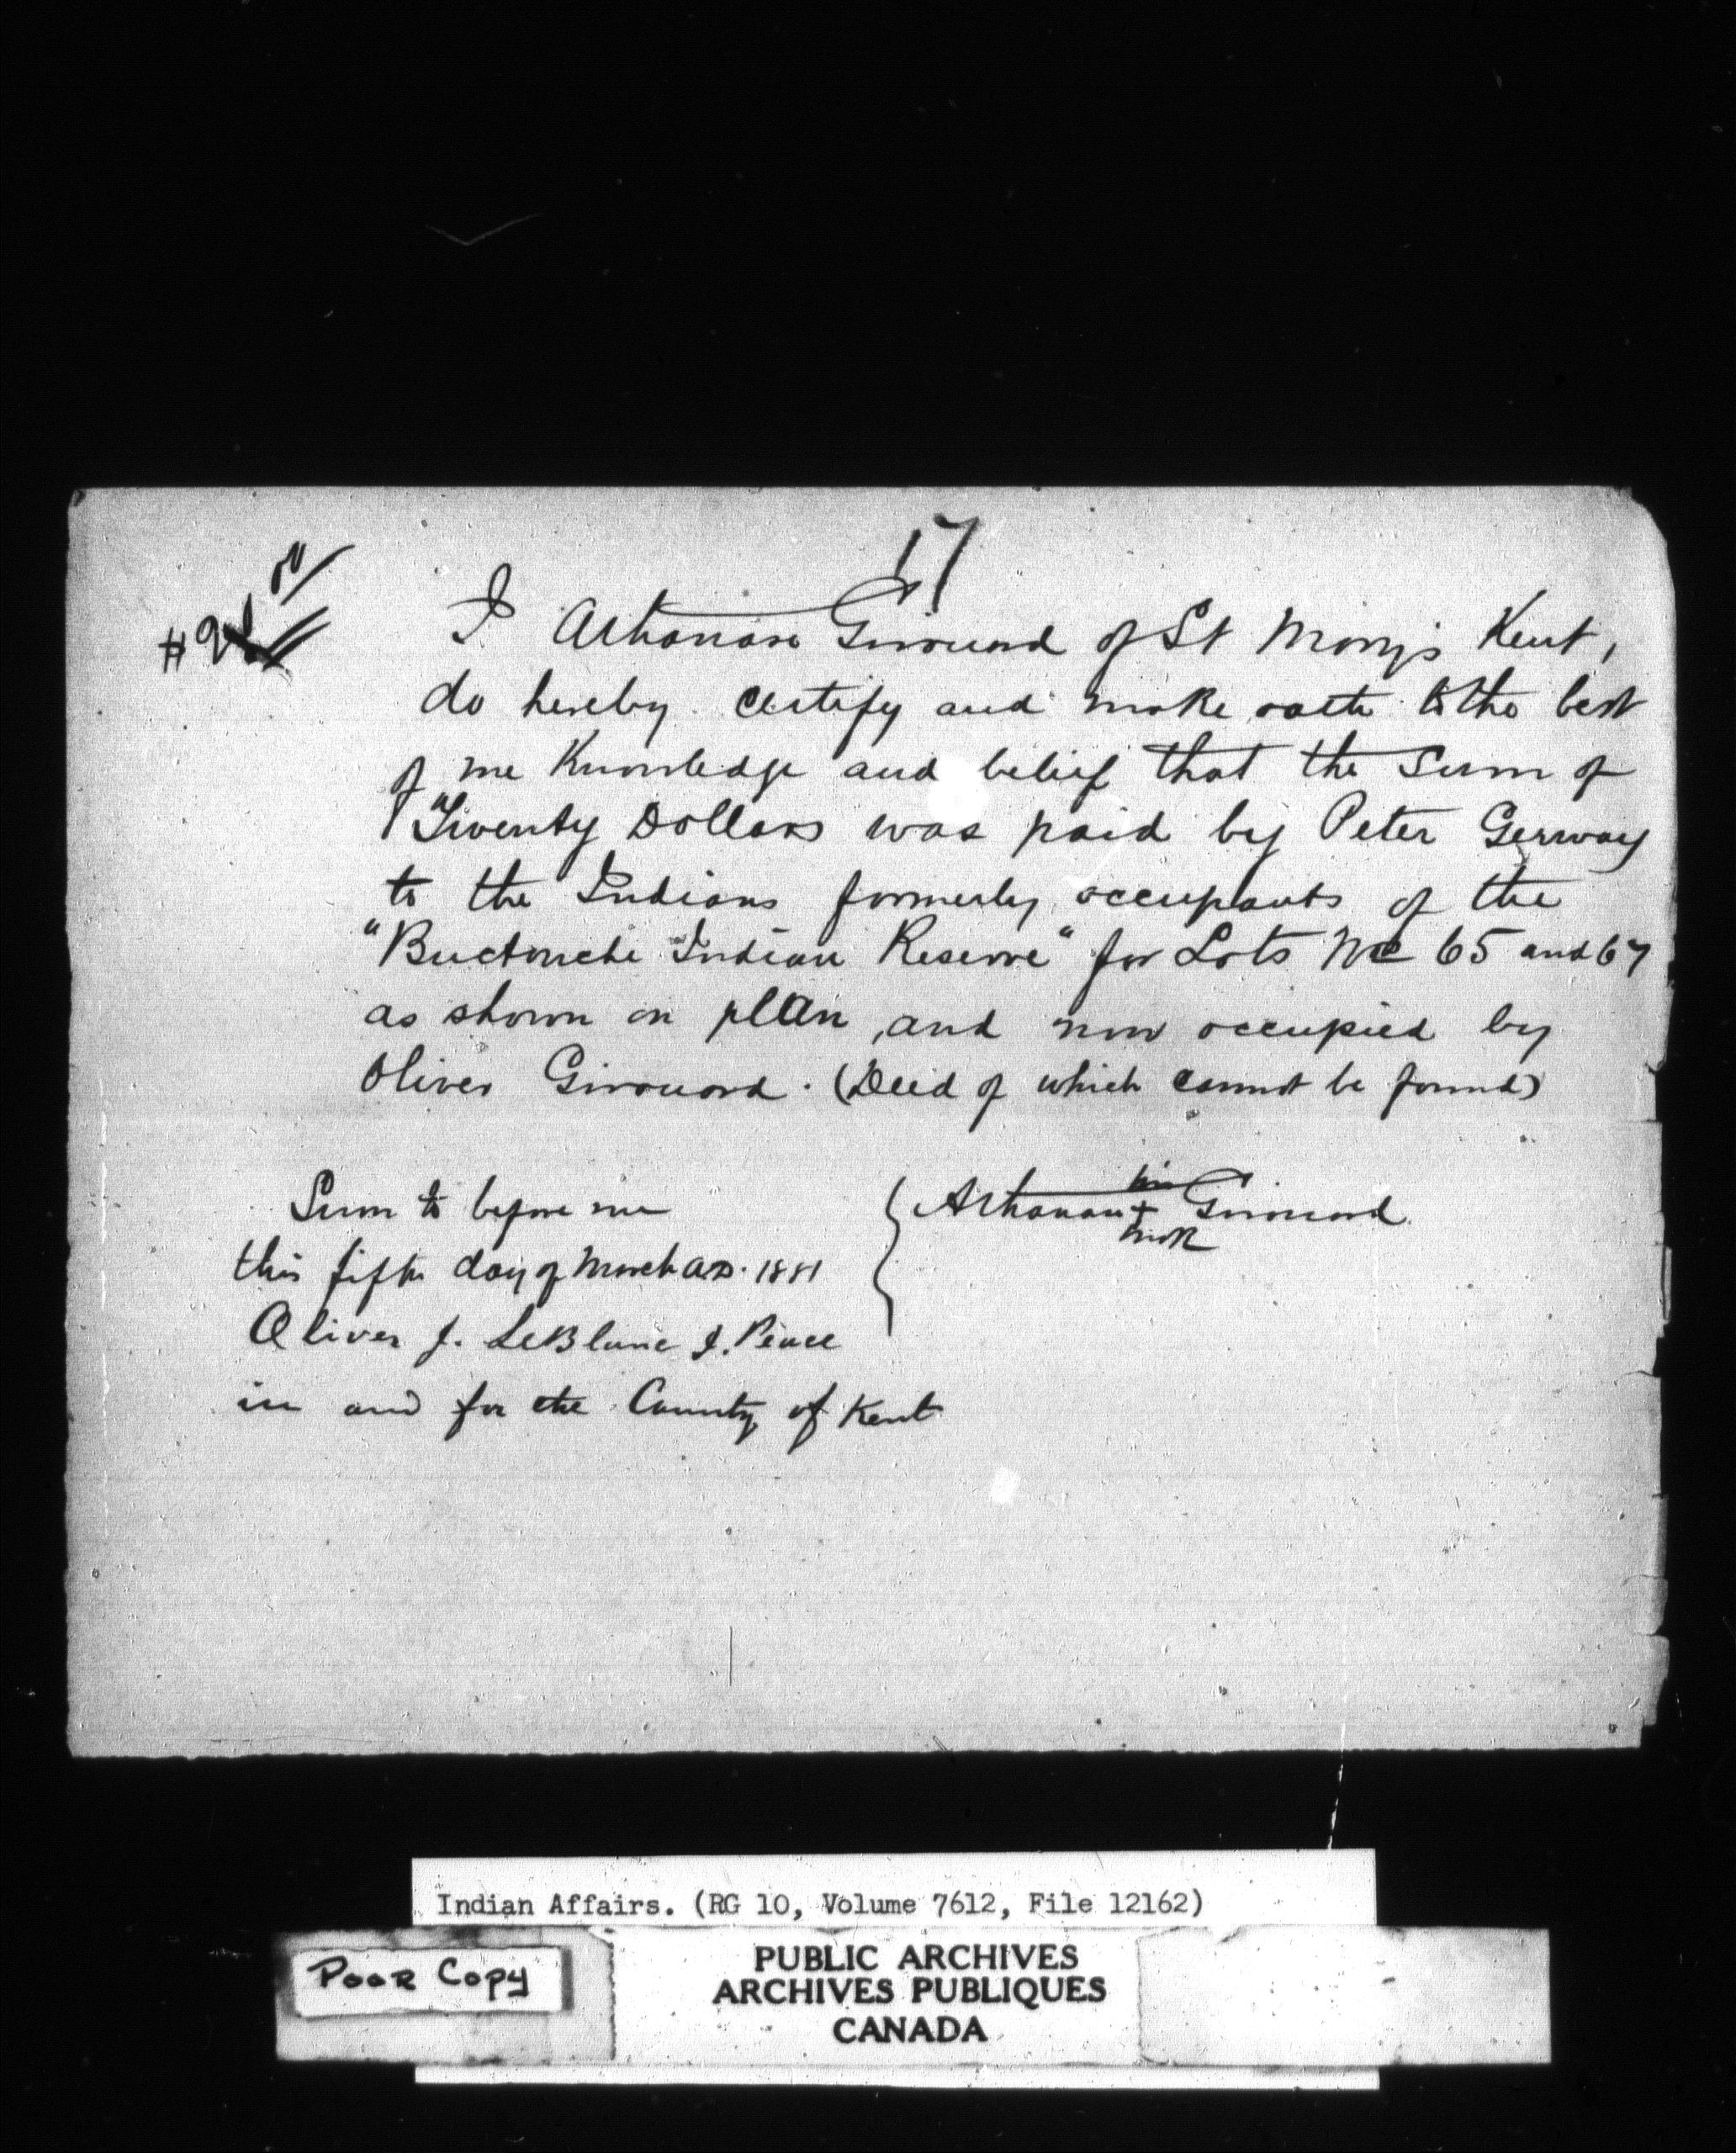 17
I Athanase Girouard of St Mary's Kent,
do hereby certify and make oath to the best
of me Knowledge and belief that the Sum of
"Twenty Dollars was paid by Peter Gerway
to the Indians formerly occupants of the
"Buctouche Indian Reserve" for Lots No 65 and 67
as shown on plan, and now occupied by
Oliver Girouard. (Deed of which cannot be found)
his
Athanase + Girouard
mark
Sworn to before me
this fifth day of March AD. 1881
Oliver J. LeBlanc J. Peace
in and for the County of Kent
Indian Affairs. (RG 10, Volume 7612, File 12162)
Poor Copy
PUBLIC ARCHIVES
ARCHIVES PUBLIQUES
CANADA